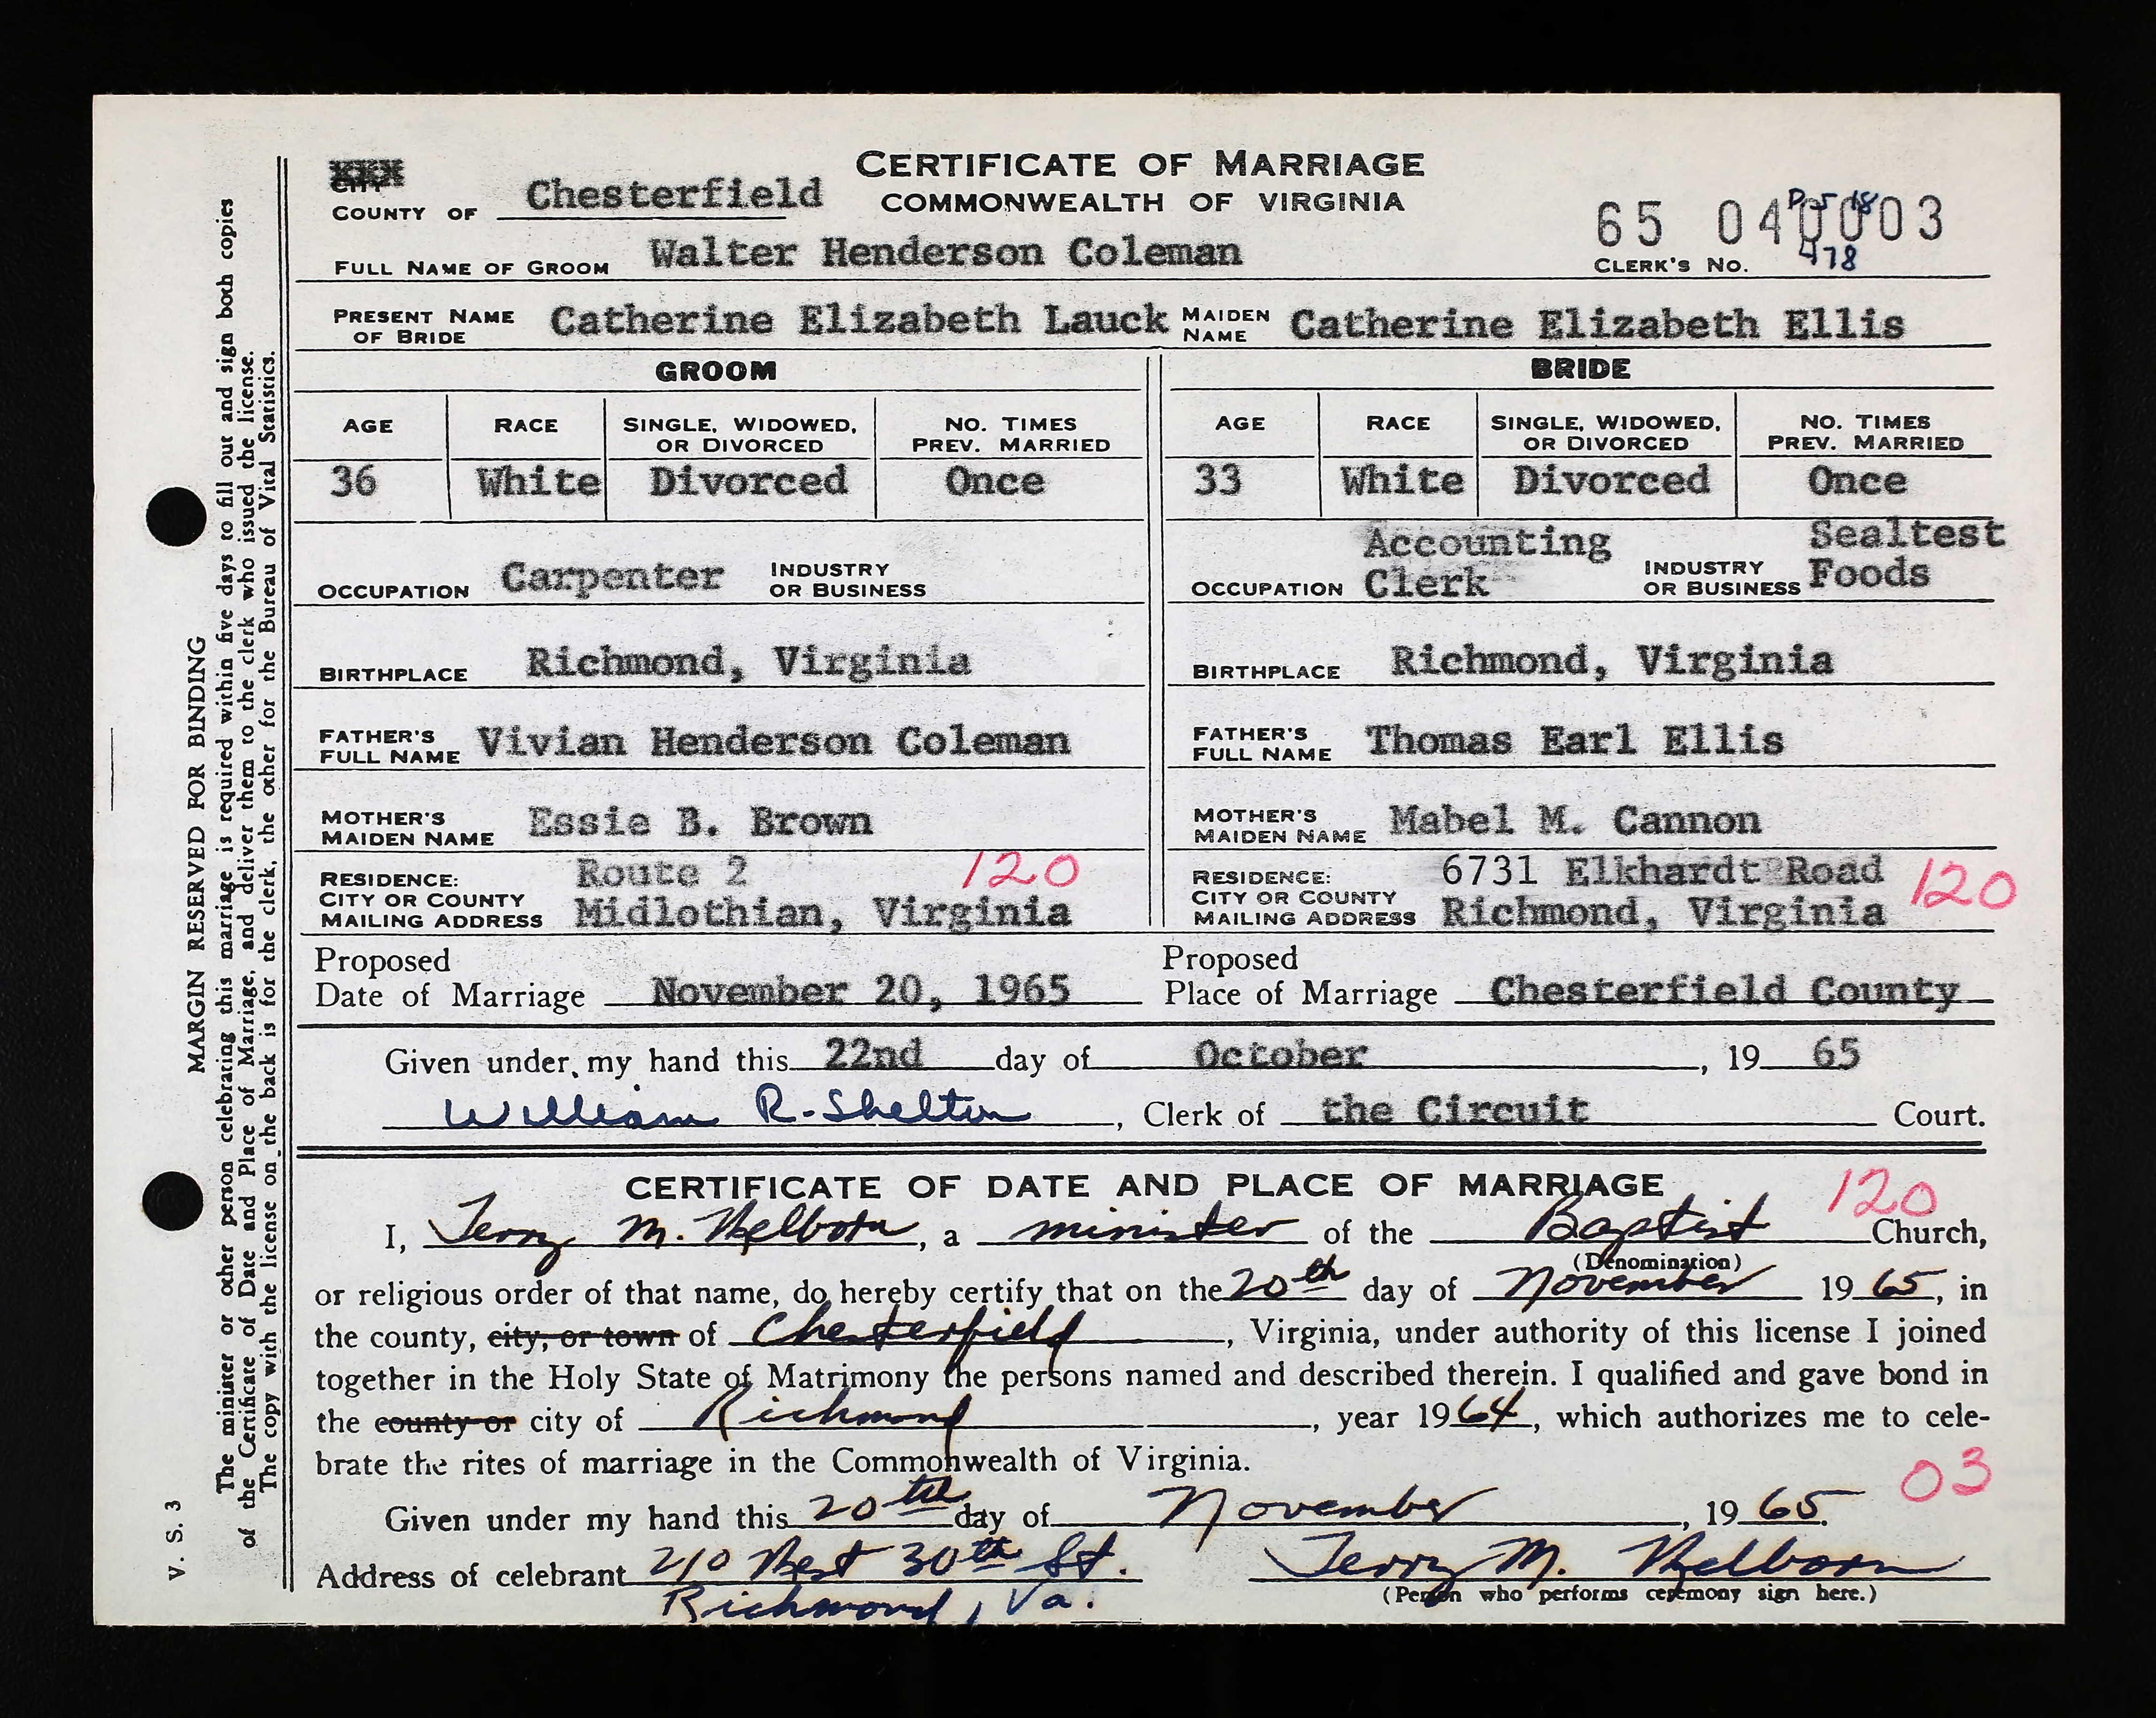 CERTIFICATE OF MARRIAGE
COMMONWEALTH OF VIRGINIA
CITY
COUNTY OF Chesterfield
65 040003
P-5 18
478
CLERK'S NO.
FULL NAME OF GROOM Walter Henderson Coleman
PRESENT NAME OF BRIDE Catherine Elizabeth Lauck MAIDEN NAME Catherine Elizabeth Ellis
GROOM BRIDE
AGE RACE SINGLE, WIDOWED, OR DIVORCED NO. TIMES PREV. MARRIED AGE RACE SINGLE, WIDOWED, OR DIVORCED NO. TIMES PREV. MARRIED
36 White Divorced Once 33 White Divorced Once
OCCUPATION Carpenter INDUSTRY OR BUSINESS OCCUPATION Accounting Clerk INDUSTRY OR BUSINESS Sealtest Foods
BIRTHPLACE Richmond, Virginia BIRTHPLACE Richmond, Virginia
FATHER'S FULL NAME Vivian Henderson Coleman FATHER'S FULL NAME Thomas Earl Ellis
MOTHER'S MAIDEN NAME Essie B. Brown MOTHER'S MAIDEN NAME Mabel M. Cannon
RESIDENCE: CITY OR COUNTY MAILING ADDRESS Route 2 Midlothian, Virginia 120 RESIDENCE: CITY OR COUNTY MAILING ADDRESS 6731 Elkhardt Road Richmond, Virginia 120
Proposed Date of Marriage November 20, 1965 Proposed Place of Marriage Chesterfield County
Given under my hand this 22nd day of October, 19 65
William R. Shelton, Clerk of the Circuit Court.
CERTIFICATE OF DATE AND PLACE OF MARRIAGE 120
I, Jerry M. Welborn, a minister of the Baptist Church,
(Denomination)
or religious order of that name, do hereby certify that on the 20th day of November 19 65, in
the county, city, or town of Chesterfield, Virginia, under authority of this license I joined
together in the Holy State of Matrimony the persons named and described therein. I qualified and gave bond in
the county or city of Richmond, year 19 64, which authorizes me to cele-
brate the rites of marriage in the Commonwealth of Virginia.
03
Given under my hand this 20th day of November, 19 65.
Address of celebrant 210 West 30th St. Jerry M. Welborn
Richmond, Va. (Person who performs ceremony sign here.)
MARGIN RESERVED FOR BINDING
The minister or other person celebrating this marriage is required within five days to fill out and sign both copies
of the Certificate of Date and Place of Marriage, and deliver them to the clerk who issued the license.
The copy with the license on the back is for the clerk, the other for the Bureau of Vital Statistics.
V. S. 3